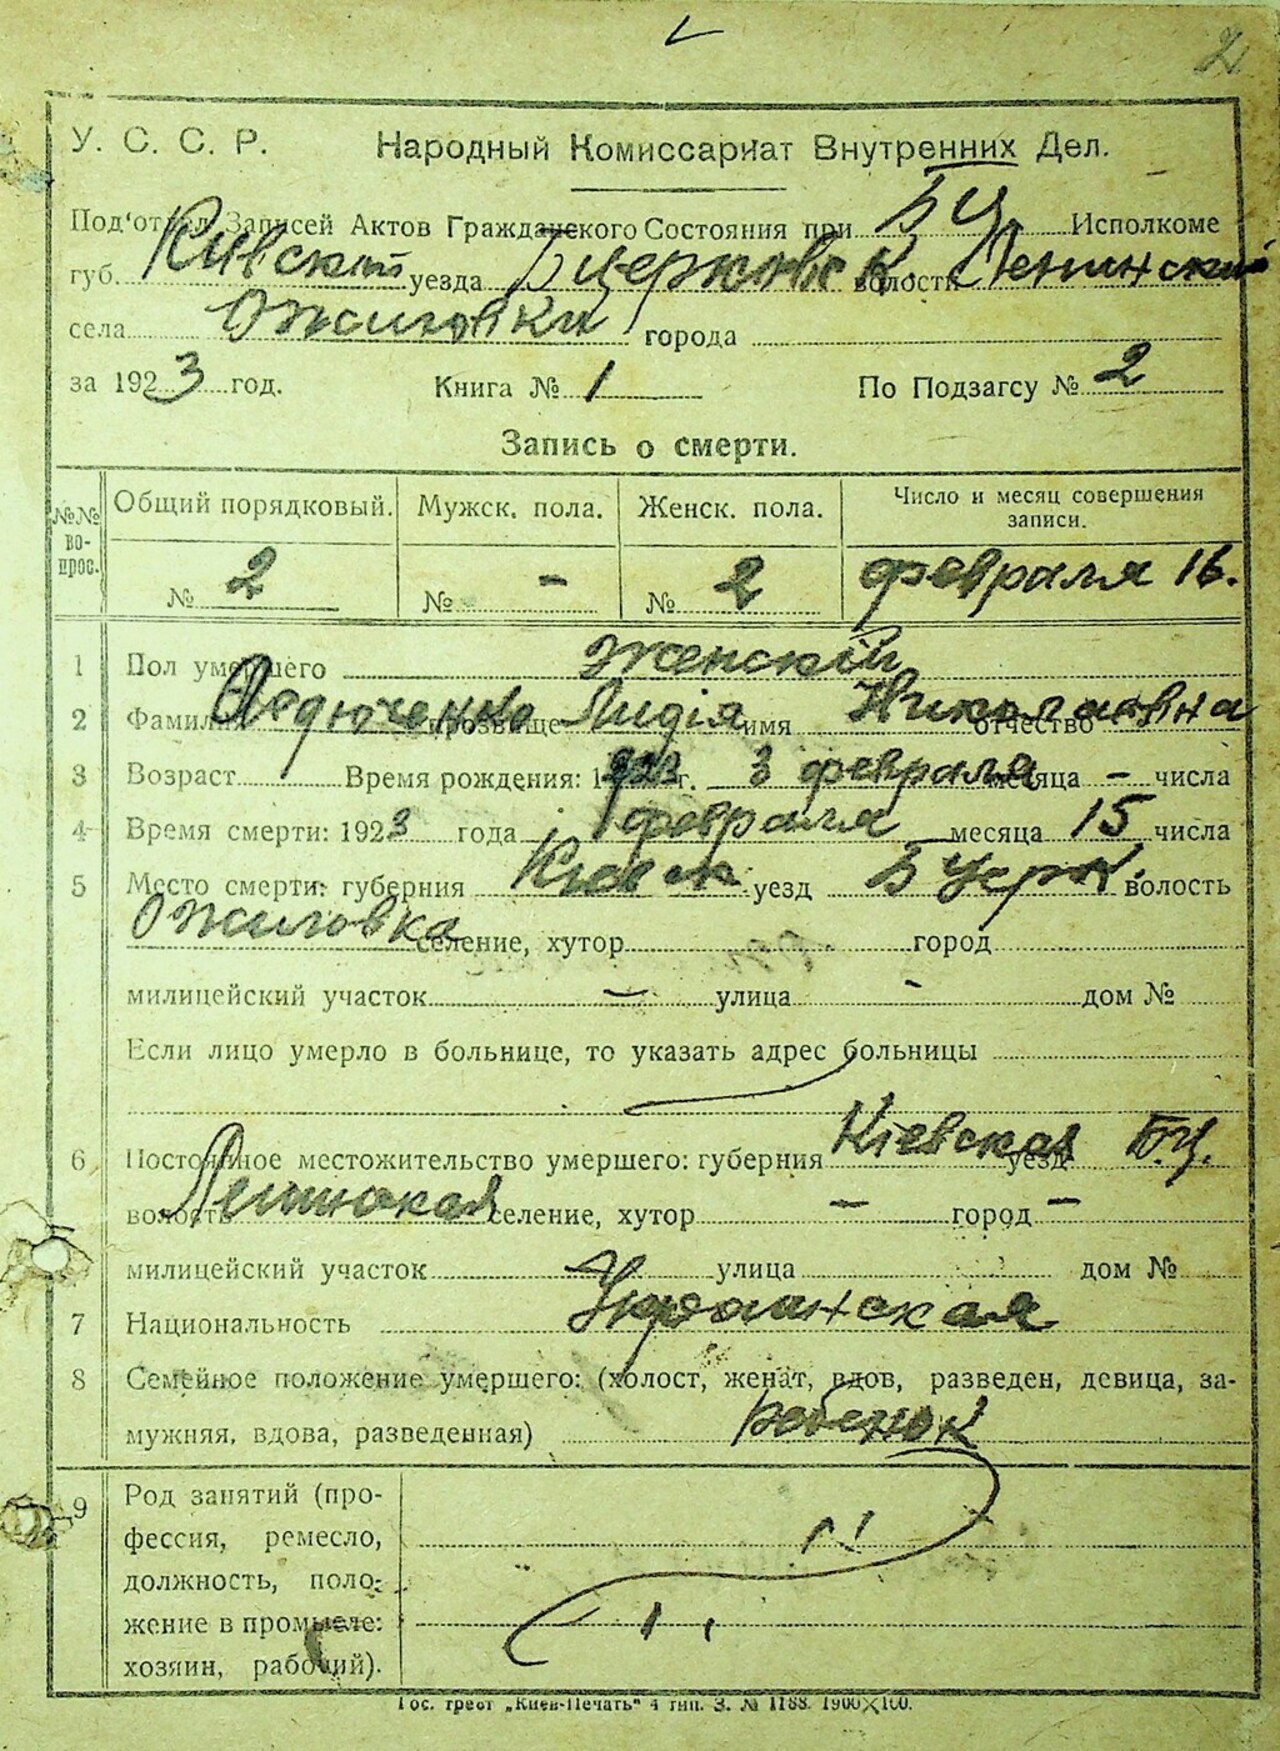 2
У. С. С. Р. Народный Комиссариат Внутренних Дел.
Под'отдел Записей Актов Гражданского Состояния при БЦ Исполкоме
губ. Киевской уезда Бцерковск. волости Ленинской
села Ожиговки города
за 1923 год. Книга № 1 По Подзагсу № 2
Запись о смерти.
№№ вопрос. Общий порядковый. Мужск. пола. Женск. пола. Число и месяц совершения записи.
№ 2 № - № 2 февраля 16.
1 Пол умершего Женскій
2 Фамилия прозвище Лидія имя Николаевна отчество
3 Возраст Время рождения: 1923 г. 3 февраля месяца - числа
4 Время смерти: 1923 года февраля месяца 15 числа
5 Место смерти: губерния Киевск уезд БЦерк. волость
Ожиговка селение, хутор город
милицейский участок - улица - дом №
Если лицо умерло в больнице, то указать адрес больницы
6 Постоянное местожительство умершего: губерния Кіевская уезд Б.Ц.
волость Ленинская селение, хутор - город -
милицейский участок улица дом №
7 Национальность Украинская
8 Семейное положение умершего: (холост, женат, вдов, разведен, девица, за-
мужняя, вдова, разведенная) Ребенок
9 Род занятий (про-
фессия, ремесло,
должность, поло-
жение в промысле:
хозяин, рабочий).
Гос. трест „Киев-Печать" 4 тип. З. № 1188. 1900×100.